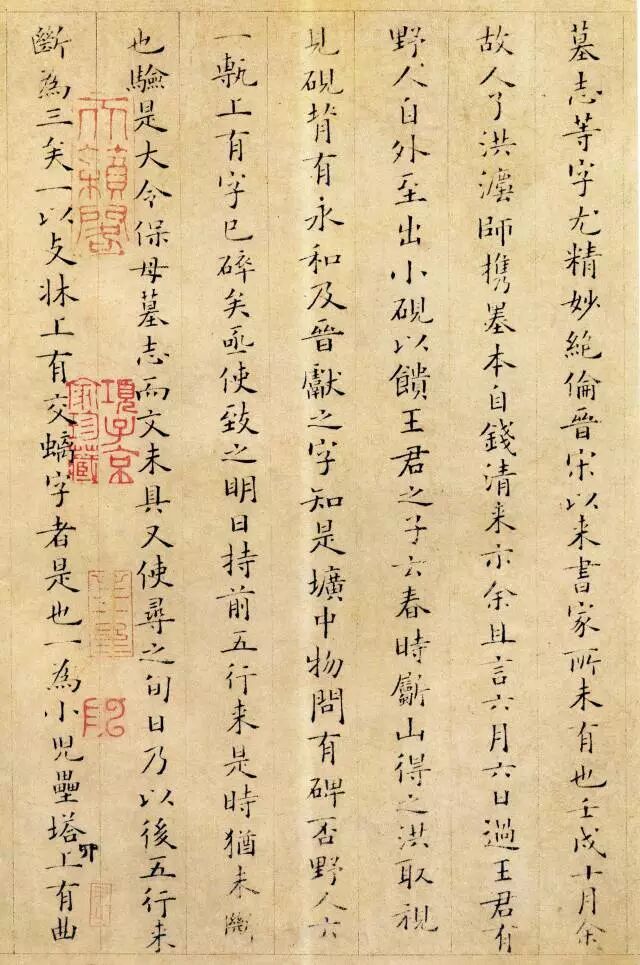 墓志等字尤精妙絶倫晉宋以来書家所未有也壬戌十月余
故人了洪灋師携墨本自錢清来示余且言六月六日過王君有
野人自外至出小硯以饋王君之子云春時斸山得之洪取視
見硯背有永和及晉獻之字知是壙中物問有碑否野人云
一甎上有字已碎矣亟使致之明日持前五行来是時猶未斷
也驗是大令保母墓志而文未具又使尋之旬日乃以後五行来
天籟閣
項子京家珍藏
斷為三矣一以支牀上有交螭字者是也一為小兒壘塔上有曲
卯